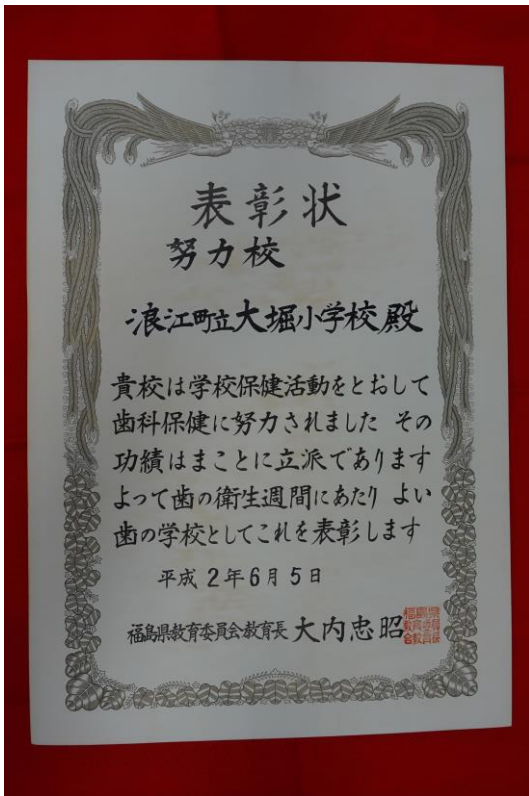 表彰状
努力校
浪江町立大堀小学校殿
貴校は学校保健活動をとおして
歯科保健に努力されました その
功績はまことに立派であります
よって歯の衛生週間にあたり よい
歯の学校としてこれを表彰します
平成2年6月5日
福島県教育委員会教育長 大内忠昭